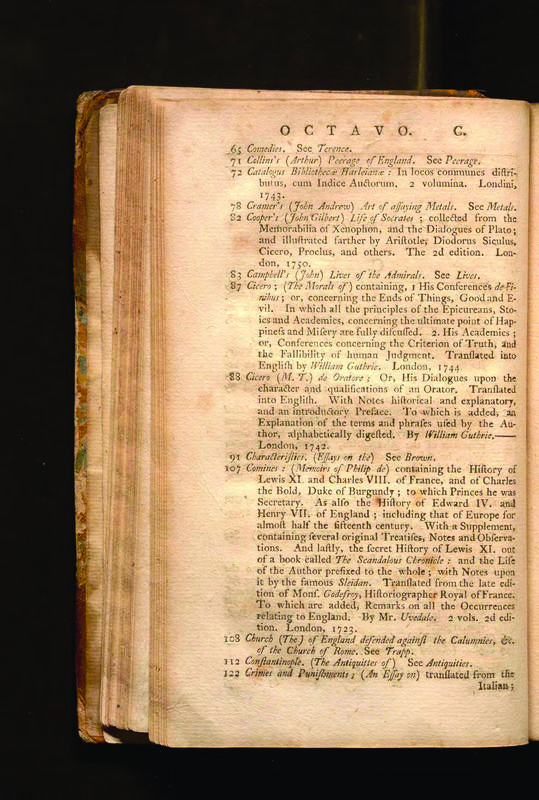 OCTAVO. C.
65 Comedies. See Terence.
71 Collins's (Arthur) Peerage of England. See Peerage.
72 Catalogus Bibliothecæ Harleianæ : In locos communes diſtri-
butus, cum Indice Auctorum, 2 volumina. Londini,
1743.
78 Cramer's (John Andrew) Art of aſſaying Metals. See Metals.
82 Cooper's (John Gilbert) Life of Socrates ; collected from the
Memorabilia of Xenophon, and the Dialogues of Plato ;
and illuſtrated farther by Ariſtotle, Diodorus Siculus,
Cicero, Proclus, and others. The 2d edition. Lon-
don, 1750.
83 Campbell's (John) Lives of the Admirals. See Lives.
87 Cicero ; (The Morals of) containing, 1 His Conferences de Fi-
nibus ; or, concerning the Ends of Things, Good and E-
vil. In which all the principles of the Epicureans, Sto-
ics and Academics, concerning the ultimate point of Hap-
pineſs and Miſery are fully diſcuſſed. 2. His Academics ;
or, Conferences concerning the Criterion of Truth, and
the Fallibility of human Judgment. Tranſlated into
Engliſh by William Guthrie. London, 1744
88 Cicero (M. T.) de Oratore ; Or, His Dialogues upon the
character and qualifications of an Orator. Tranſlated
into Engliſh. With Notes hiſtorical and explanatory,
and an introductory Preface. To which is added, an
Explanation of the terms and phraſes uſed by the Au-
thor, alphabetically digeſted. By William Guthrie.——
London, 1742.
91 Characteriſtics. (Eſſays on the) See Brown.
107 Comines : (Memoirs of Philip de) containing the Hiſtory of
Lewis XI. and Charles VIII. of France, and of Charles
the Bold, Duke of Burgundy ; to which Princes he was
Secretary. As alſo the Hiſtory of Edward IV. and
Henry VII. of England ; including that of Europe for
almoſt half the fifteenth century. With a Supplement,
containing ſeveral original Treatiſes, Notes and Obſerva-
tions. And laſtly, the ſecret Hiſtory of Lewis XI. out
of a book called The Scandalous Chronicle : and the Life
of the Author prefixed to the whole ; with Notes upon
it by the famous Sleidan. Tranſlated from the late edi-
tion of Monſ. Godefroy, Hiſtoriographer Royal of France.
To which are added, Remarks on all the Occurrences
relating to England. By Mr. Uvedale. 2 vols. 2d edi-
tion. London, 1723.
108 Church (The) of England defended againſt the Calumnies, &c.
of the Church of Rome. See Trapp.
112 Conſtantinople. (The Antiquities of) See Antiquities.
122 Crimes and Puniſhments ; (An Eſſay on) tranſlated from the
Italian ;